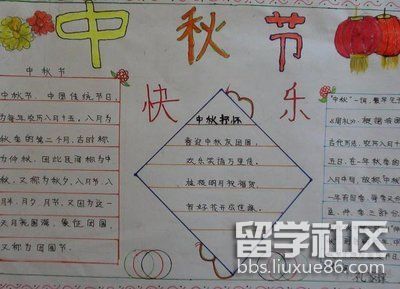 中秋节
快乐
中秋节
中秋节，中国传统节日，
为每年农历八月十五，八月为
秋季的第二个月，古时称
为仲秋，因此民间称为中
秋，又称为秋夕，八月节，八
月半，月夕，月节，又因为这一
天月亮圆满，象征团圆，
又称为团圆节。
中秋抒怀
喜迎中秋友团圆，
欢乐笑语万里传。
有好花开在佳缘。
"中秋"一词，最早见于
《周礼》，根据
古代历法，农历八月十
五日，在一年秋季的
八月中旬，故称"中秋"
一年有四季，每季又分
三部分
留学社区
bbs.liuxue86.com